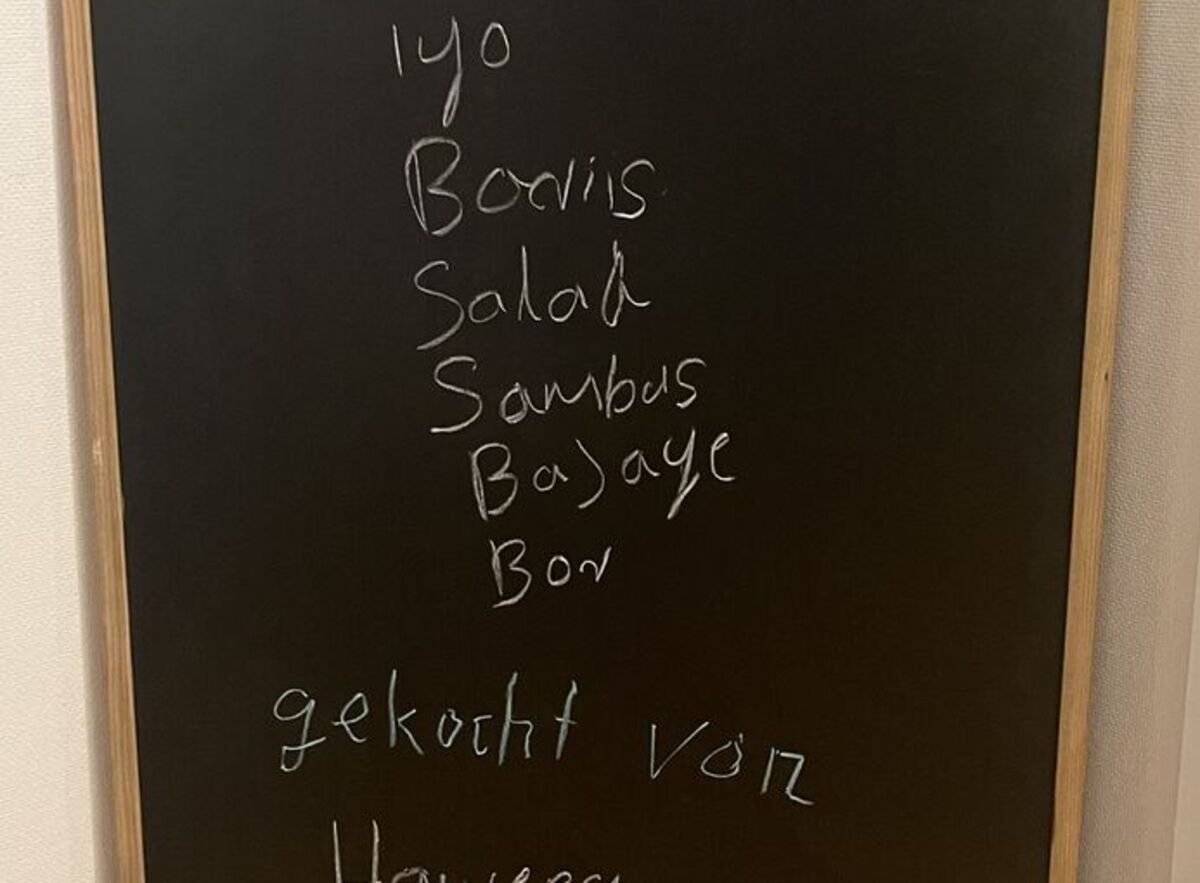 iyo
Bariis
Salad
Sambus
Bajaye
Bor
gekocht von